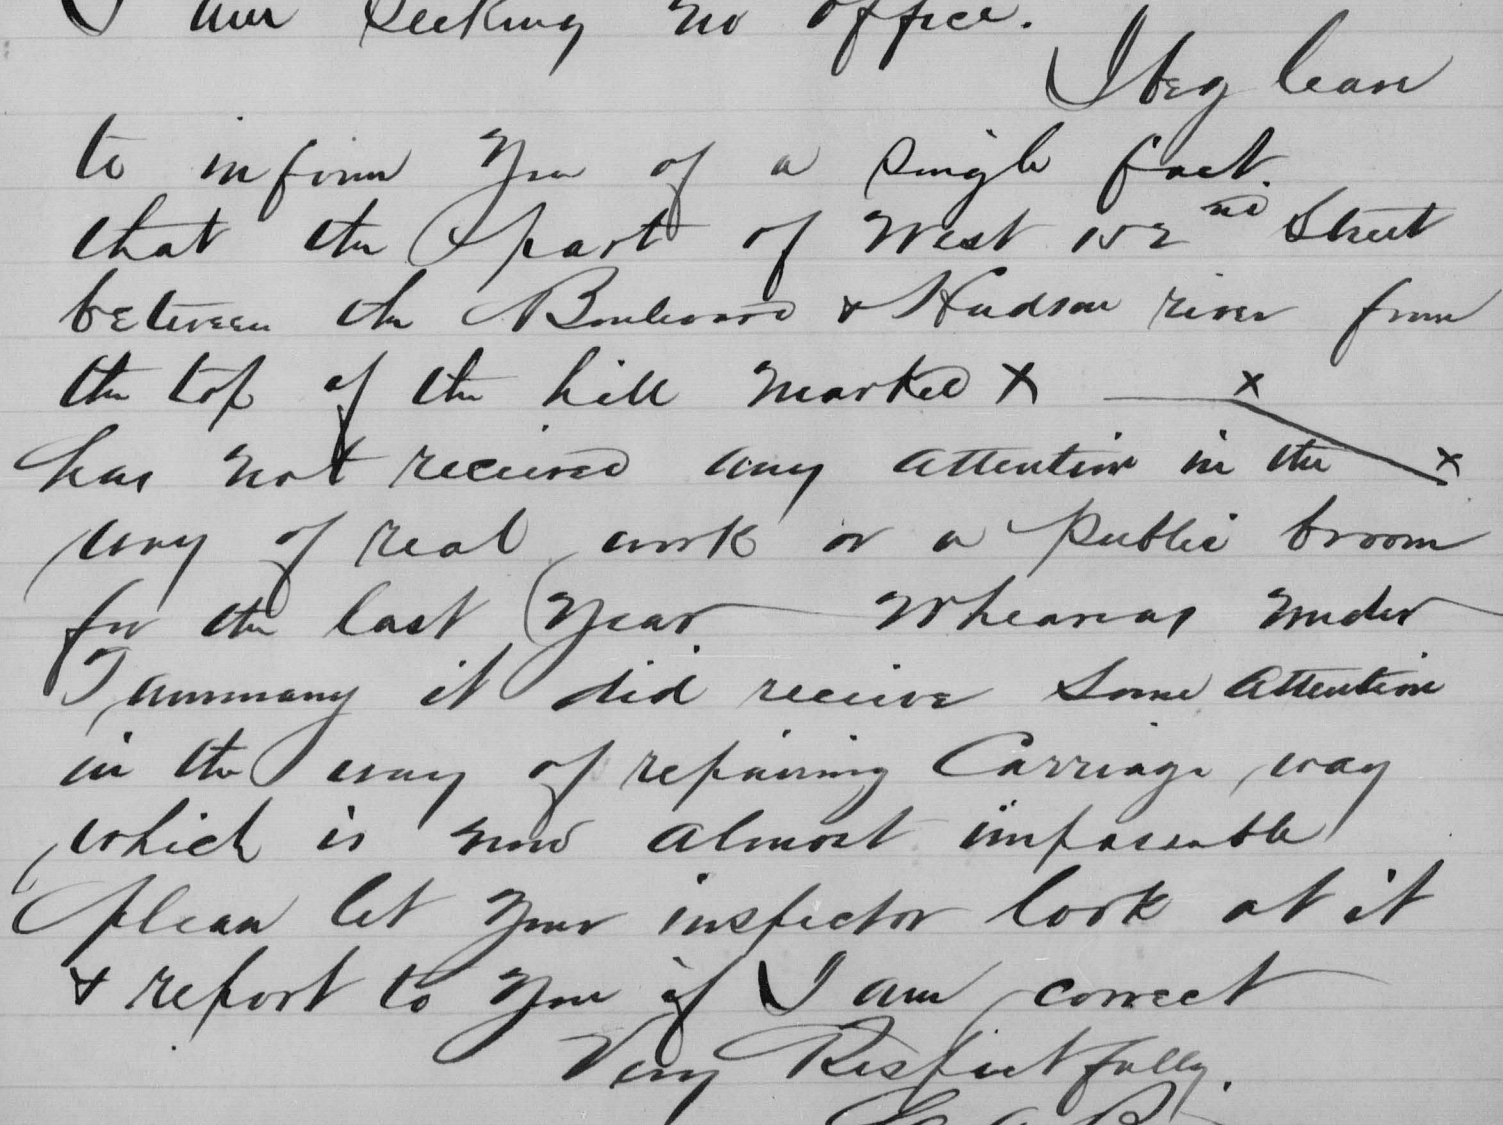 I am seeking no office.
I beg leave
to inform you of a single fact.
that the part of West 152nd Street
between the Boulevard & Hudson river from
the top of the hill marked X x
x
has not received any attention in the
way of real work or a public broom
for the last year Whereas under
Tammany it did receive some attention
in the way of repairing Carriage way
which is now almost impassable
please let your inspector look at it
& report to you if I am correct
Very Respectfully.